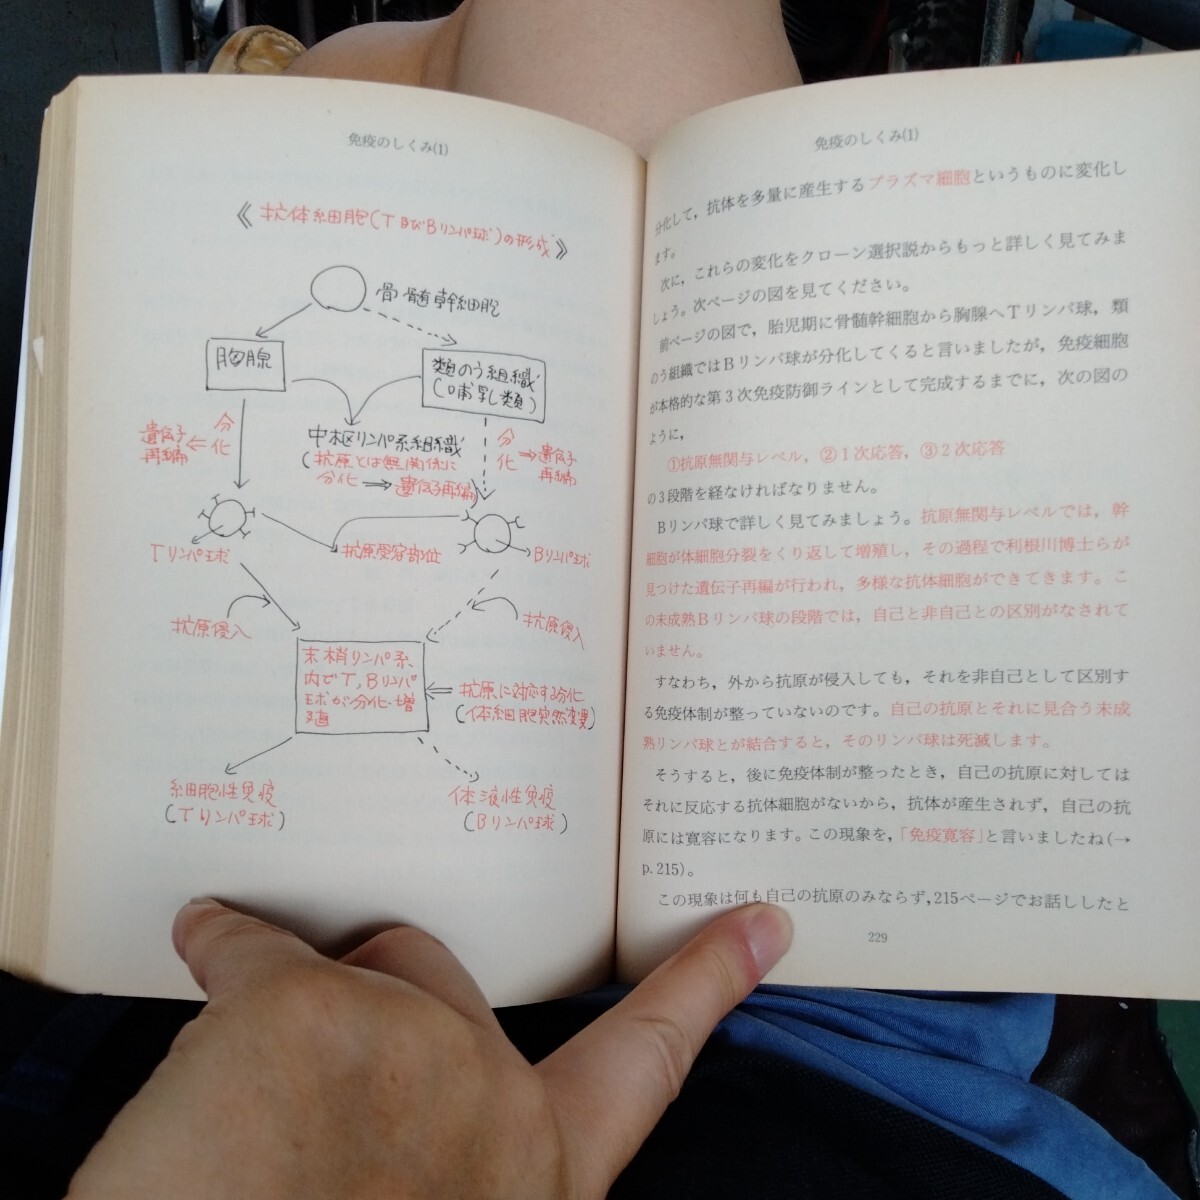 免疫のしくみ(1)
《抗体細胞(T及びBリンパ球)の形成》
骨髄幹細胞
胸腺
類のう組織
(哺乳類)
中枢リンパ系組織
(抗原とは無関係に
分化⇒遺伝子再編)
分化
遺伝子
再編
分化
遺伝子
再編
Tリンパ球
抗原受容部位
Bリンパ球
抗原侵入
抗原侵入
末梢リンパ系
内でT,Bリンパ
球が分化・増
殖
抗原に対応する分化
(体細胞突然変異)
細胞性免疫
(Tリンパ球)
体液性免疫
(Bリンパ球)
免疫のしくみ(1)
分化して，抗体を多量に産生するプラズマ細胞というものに変化し
ます。
次に，これらの変化をクローン選択説からもっと詳しく見てみま
しょう。次ページの図を見てください。
前ページの図で，胎児期に骨髄幹細胞から胸腺へTリンパ球，類
のう組織ではBリンパ球が分化してくると言いましたが，免疫細胞
が本格的な第3次免疫防御ラインとして完成するまでに，次の図の
ように，
①抗原無関与レベル，②1次応答，③2次応答
の3段階を経なければなりません。
Bリンパ球で詳しく見てみましょう。抗原無関与レベルでは，幹
細胞が体細胞分裂をくり返して増殖し，その過程で利根川博士らが
見つけた遺伝子再編が行われ，多様な抗体細胞ができてきます。こ
の未成熟Bリンパ球の段階では，自己と非自己との区別がなされて
いません。
すなわち，外から抗原が侵入しても，それを非自己として区別す
る免疫体制が整っていないのです。自己の抗原とそれに見合う未成
熟リンパ球とが結合すると，そのリンパ球は死滅します。
そうすると，後に免疫体制が整ったとき，自己の抗原に対しては
それに反応する抗体細胞がないから，抗体が産生されず，自己の抗
原には寛容になります。この現象を，「免疫寛容」と言いましたね(→
p.215)。
この現象は何も自己の抗原のみならず，215ページでお話ししたと
229